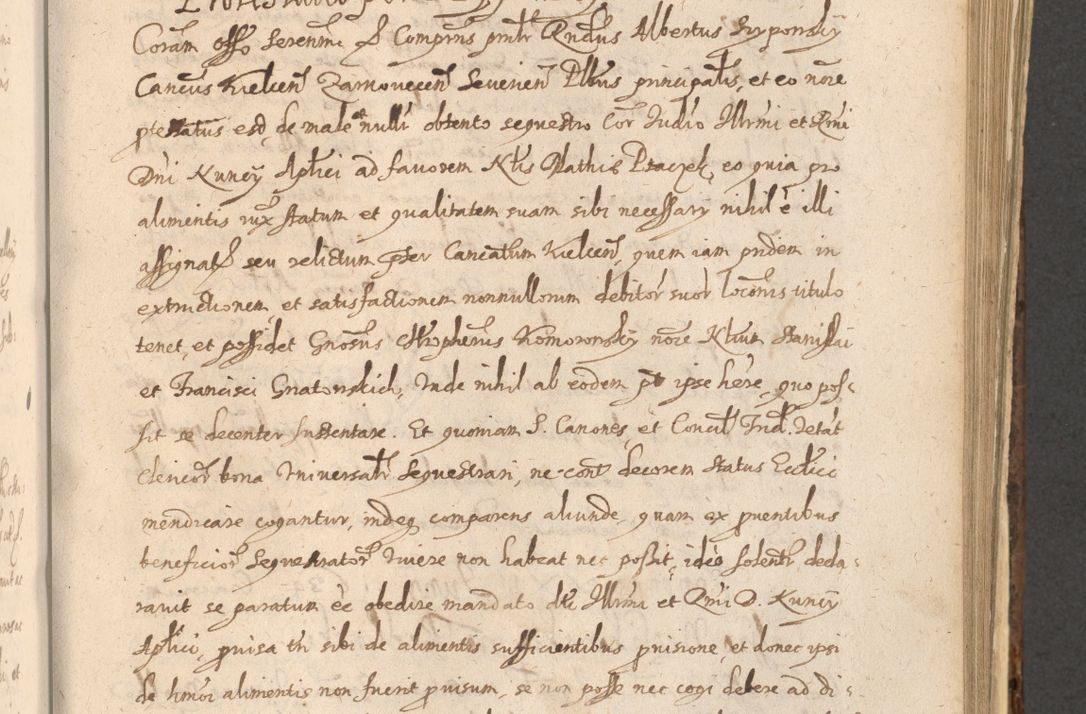 Coram offo Serenmi & Comprns prntr Rndus Albertus
Cancus Kielcen Zarnovecen Sevenen Pltus principalis, et eo nõre
ptestatus esd, de male et nulli obtento sequestro Cor Iudio Illrmi et Rmi
Dni Nuncij Aplici ad fauorem Nlis Mathis Ptaczek, eo quia pro
alimentis iux statum et qualitatem suam sibi necessarij nihil ẽ illi
assignat seu relictum pter Cancatum Kielcen, quem iam pridem in
extructionem, et satisfactionem nonnullorum debitor suor locõnis titulo
tenet, et possidet Gnosus Chropherus Komoronsky nõre Nlium Stanislai
et Francisci Gnatonskich, Unde nihil ab eodem pt ipse hẽre, quo pos-
sit se decenter sustentare. Et quoniam S. Canones, et Concil Trid. Vetat
Clericor bona Universalr sequestrari, ne cont decorem status Ecclici
mendicare cogantur, indeq comparens aliunde, quam ex puentibus
beneficior sequestrator viuere non habeat nec possit, ideo solentr decla-
rauit se paratum ẽe obedire mandato dti Illrmi et Rmi D. Nuncij
Aplici, puisa tñ sibi de alimentis sufficientibus puisione, et donec ipsi
de hmoi alimentis non fuerit puisum, se non posse nec cogi debere ad di-